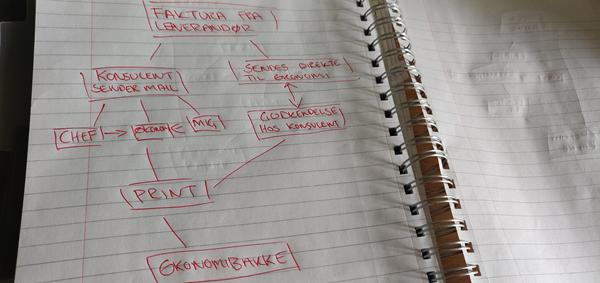 FAKTURA FRA
LEVERANDØR
KONSULENT
SENDER MAIL
SENDES DIREKTE
TIL ØKONOMI
CHEF
ØKONOMI
MIG
GODKENDELSE
HOS KONSULENT
PRINT
ØKONOMIBAKKE